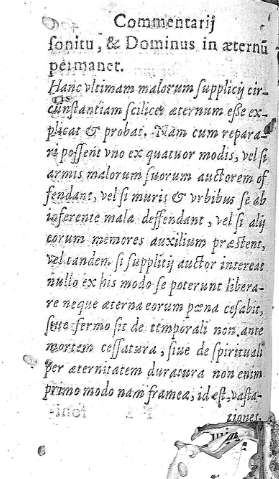 Commentarij
sonitu, & Dominus in æternũ
permanet.
Hanc vltimam malorum supplicij cir-
cunstantiam scilicet æternum esse ex-
plicat & probat. Nam cum repara-
ri possent vno ex quatuor modis, vel si
armis malorum suorum auctorem of
fendant, vel si muris & vrbibus se ab
inferente mala deffendant, vel si alij
eorum memores auxilium præstent,
vel tandem si supplitij auctor intereat
nullo ex his modo se poterunt libera-
re neque æterna eorum pœna cesabit,
siue sermo sit de temporali non ante
mortem cessatura, siue de spirituali
per æternitatem duratura non enim
primo modo nam framea, id est, vasta-
tionet